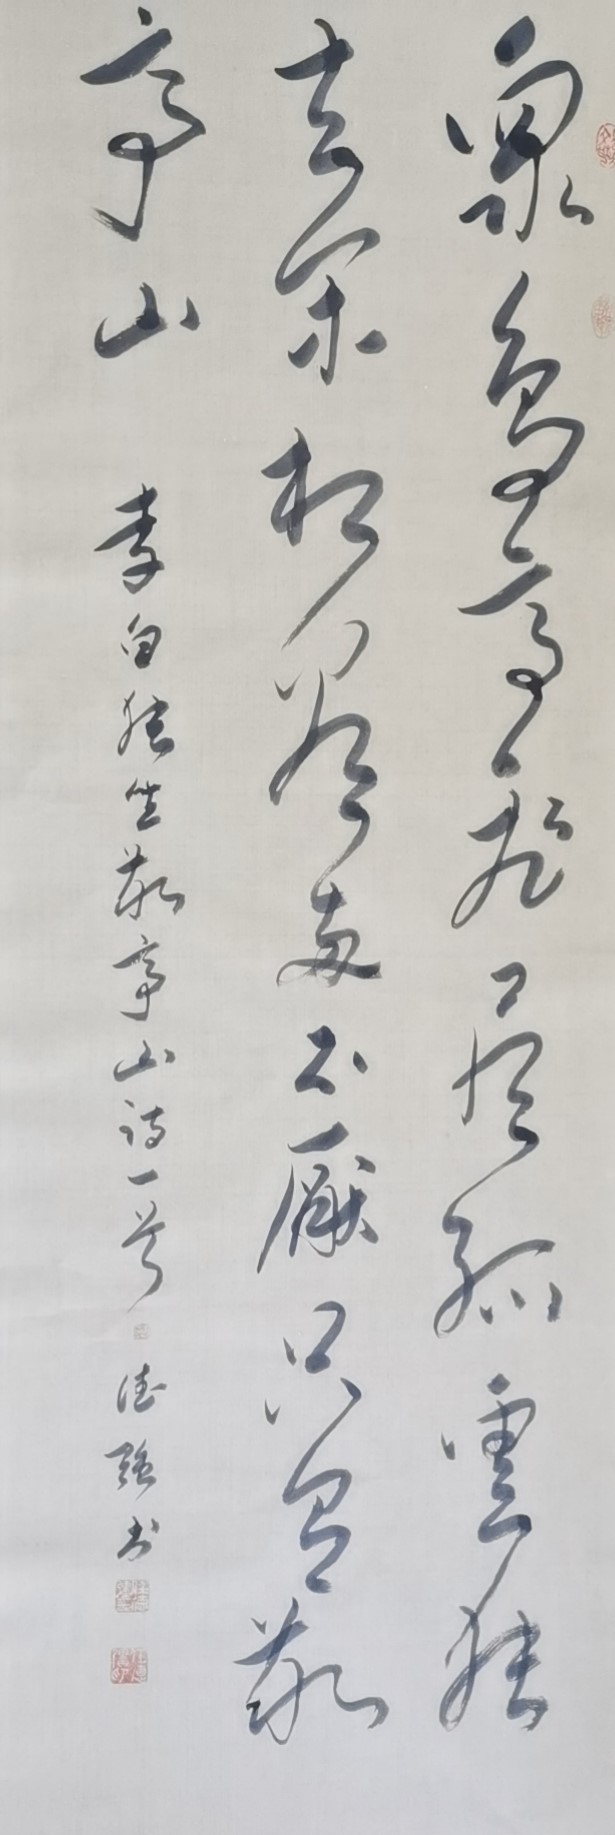 眾鳥高飛盡孤雲獨
去閑相看兩不厭只有敬
亭山 李白獨坐敬亭山詩一首 德強書